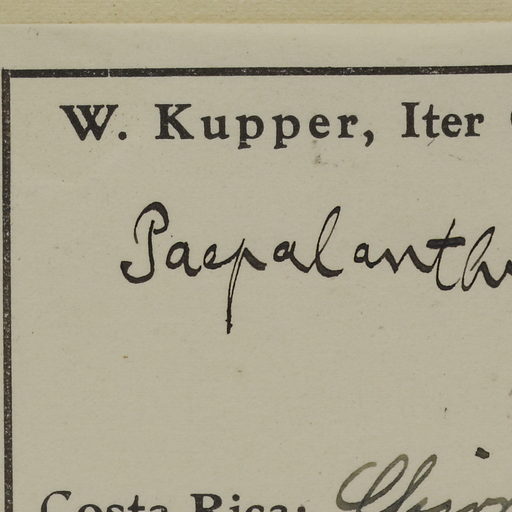 W. Kupper, Iter
Paepalanthu
Costa Rica: